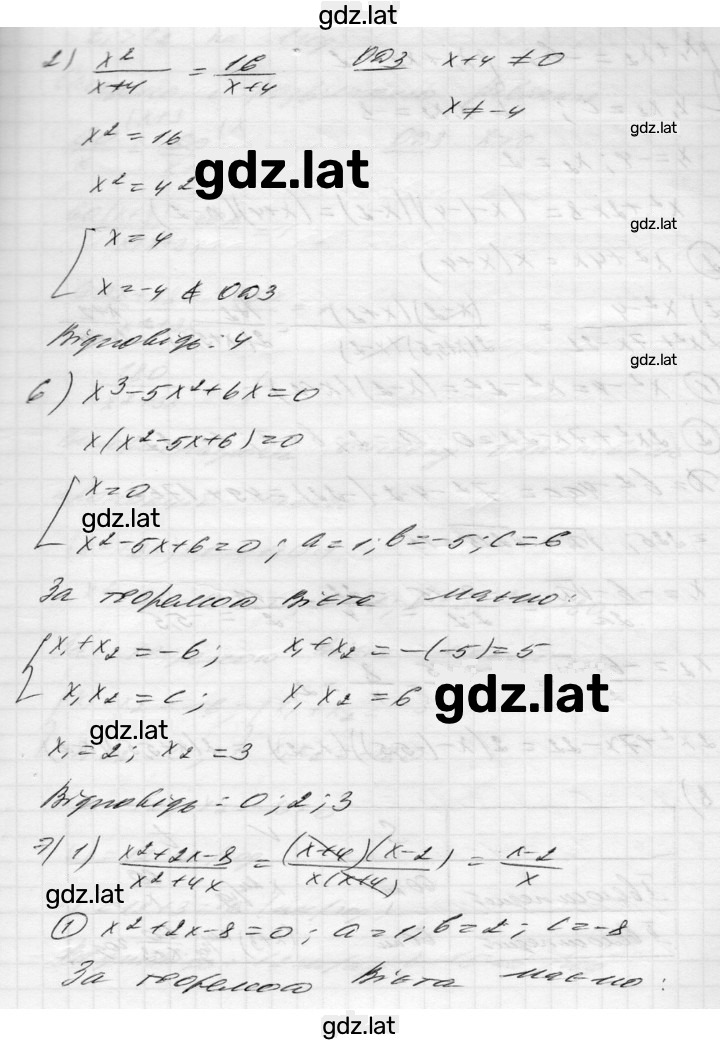 gdz.lat
2) x²/(x+4) = 16/(x+4) ОДЗ x+4 ≠ 0
x² = 16 x ≠ -4
gdz.lat
x² = 4² gdz.lat
[ x = 4 gdz.lat
x = -4 ∉ ОДЗ
Відповідь: 4
gdz.lat
6) x³ - 5x² + 6x = 0
x(x² - 5x + 6) = 0
[ x = 0
gdz.lat
x² - 5x + 6 = 0; a = 1; b = -5; c = 6
За теоремою Вієта маємо:
{ x₁ + x₂ = -b; x₁ + x₂ = -(-5) = 5
x₁ x₂ = c; x₁ x₂ = 6 gdz.lat
gdz.lat
x₁ = 2; x₂ = 3
Відповідь: 0; 2; 3
7) 1) (x²+2x-8)/(x²+4x) = ((x+4)(x-2))/(x(x+4)) = (x-2)/x
gdz.lat
① x² + 2x - 8 = 0; a = 1; b = 2; c = -8
За теоремою Вієта маємо:
gdz.lat